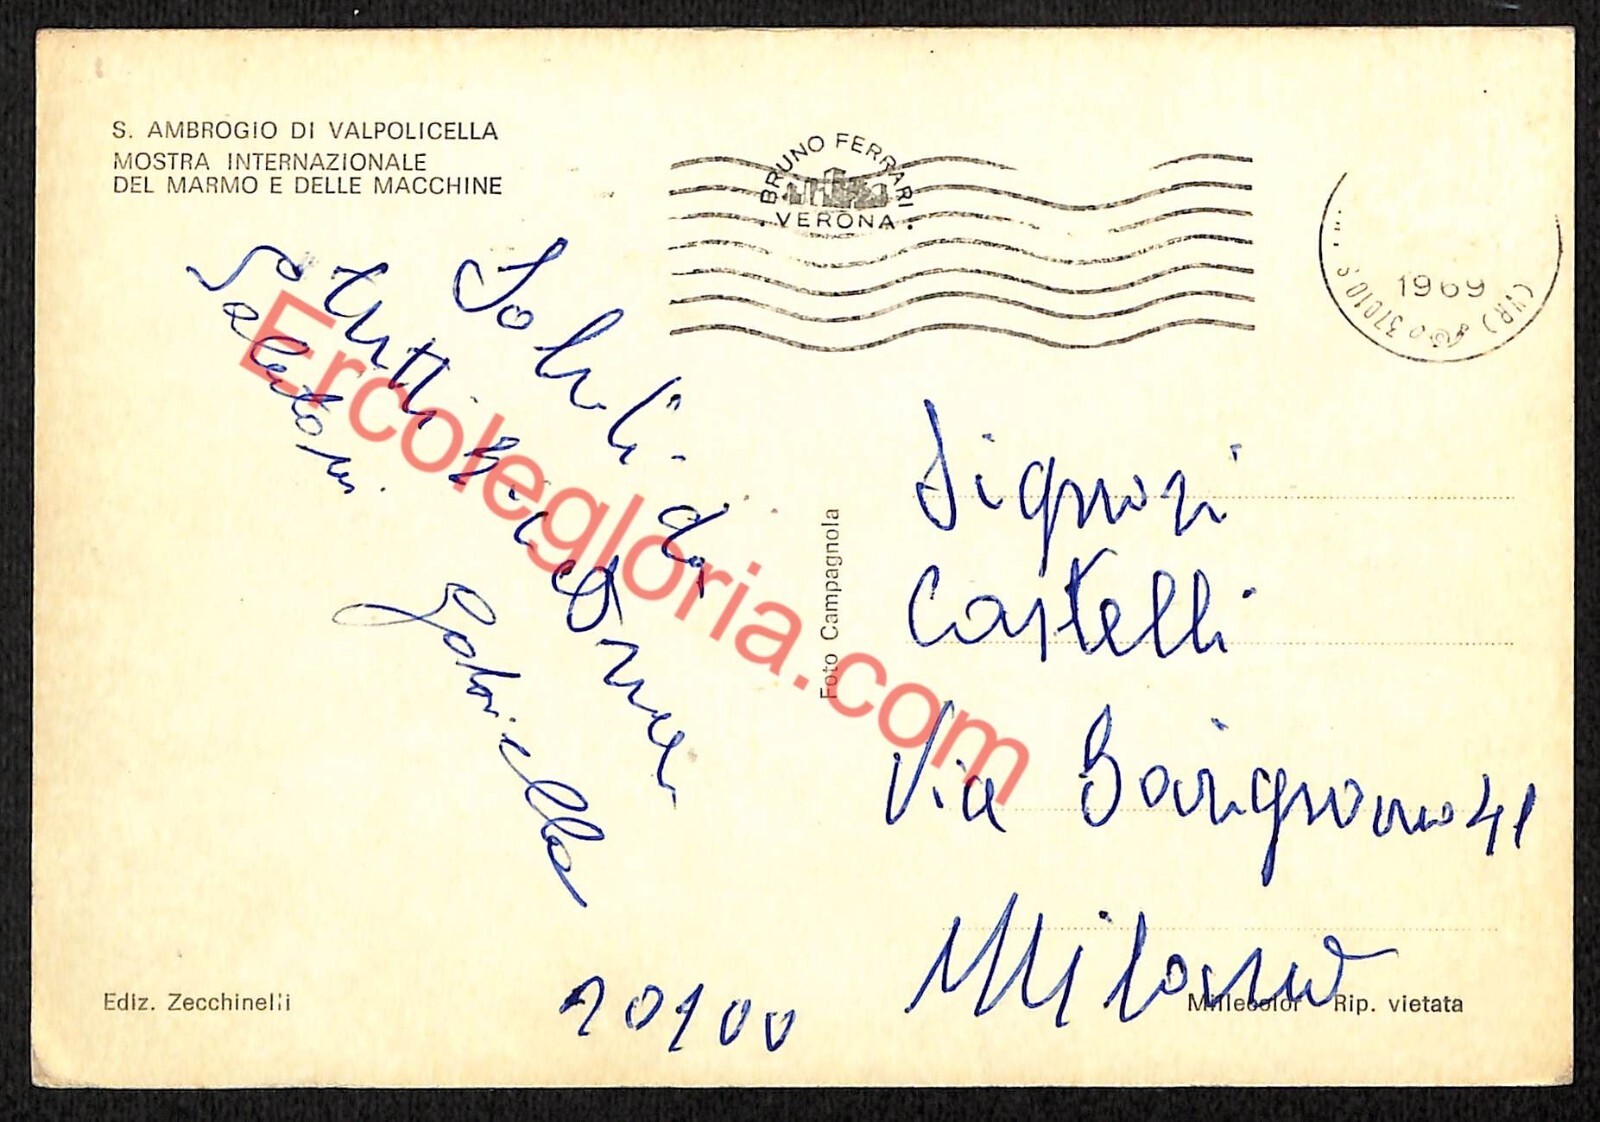 S. AMBROGIO DI VALPOLICELLA
MOSTRA INTERNAZIONALE
DEL MARMO E DELLE MACCHINE
BRUNO FERRARI
VERONA
1969
37010
(VR)
Saluti da
tutti
Gabriella
Ercolegloria.com
Foto Campagnola
Signori
Castelli
Via 41
Milano
20100
Ediz. Zecchinelli
Millecolor Rip. vietata